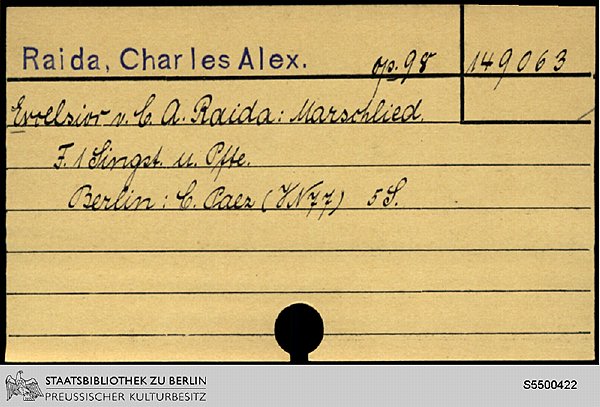 Raida, Charles Alex. op. 98 149063
Excelsior v. C. A. Raida: Marschlied.
F. 1 Singst. u. Pfte.
Berlin: C. Paez (VN 77) 5 S.
STAATSBIBLIOTHEK ZU BERLIN
PREUSSISCHER KULTURBESITZ
S5500422